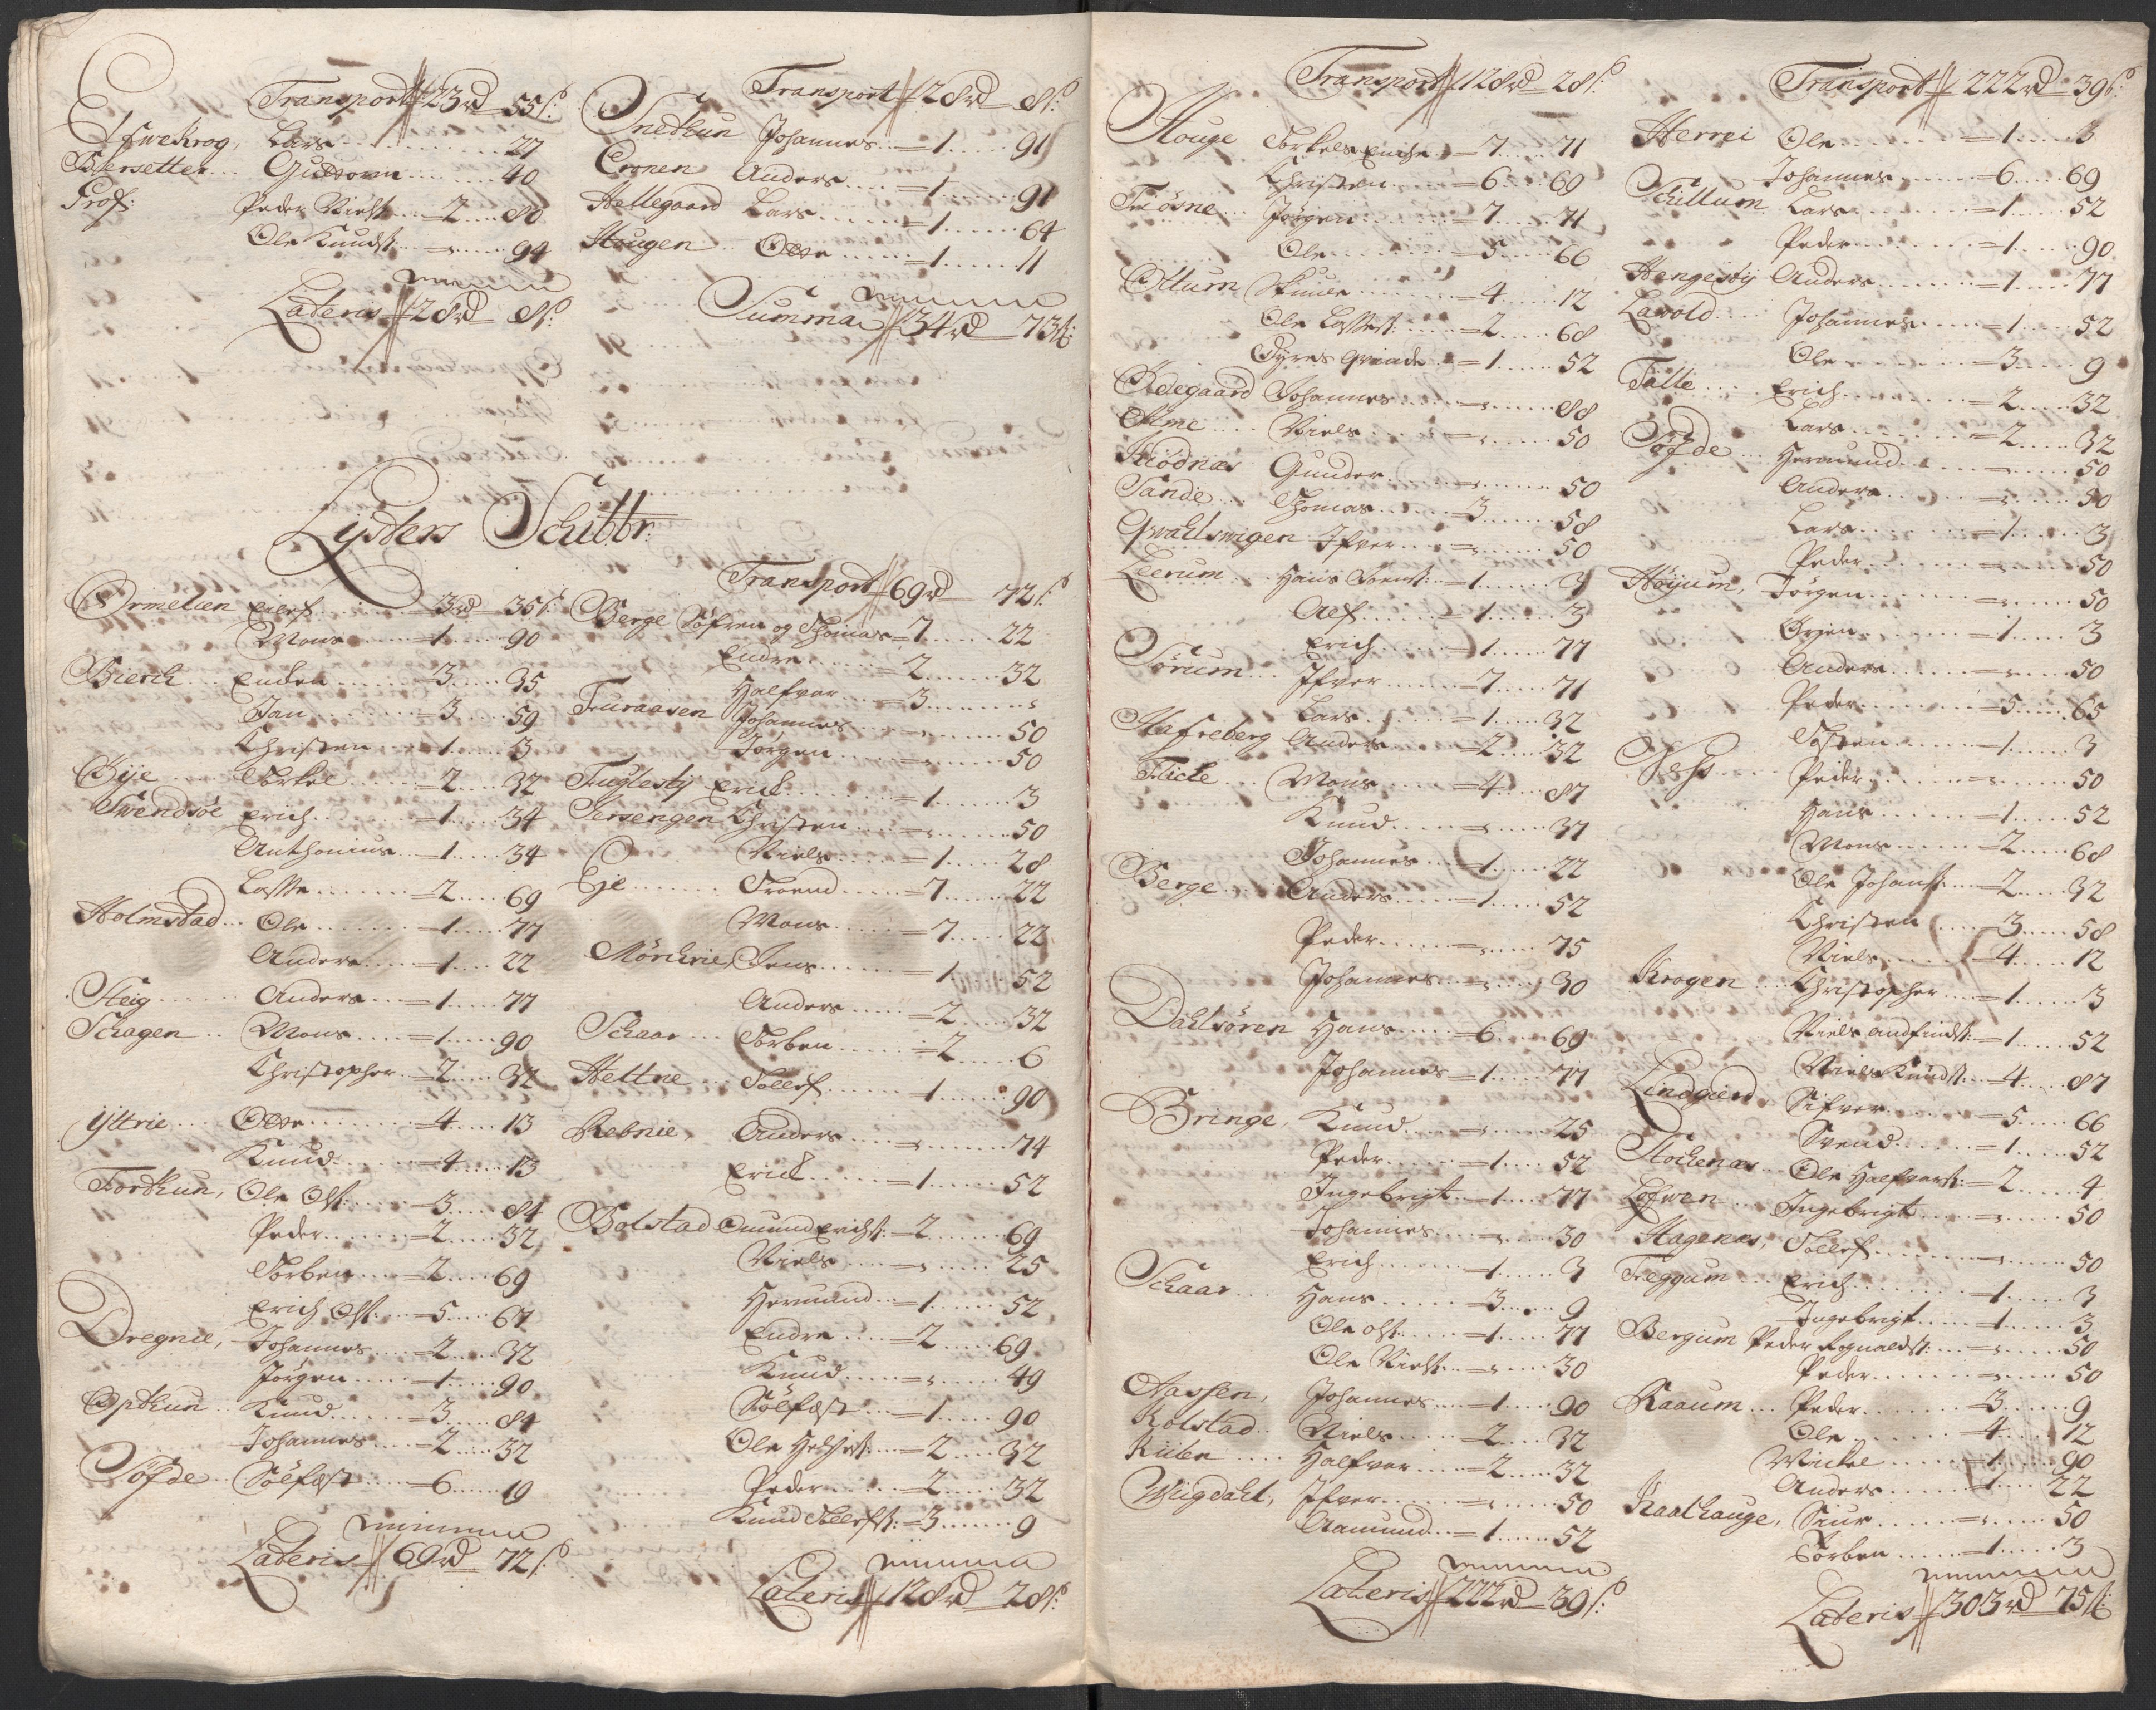 Transport 23 rd 55 s:
Lars 27
Biersetter Guttorm 40
Prof: Peder Nielss: 2 80
Ole Knuds: „ 94
Lateris 28 rd 8 s:
Transport 28 rd 8 s:
Snetkun Johannes 1 91
Cronen Anders 1 91
Hellegaard Lars 1 64
Hougen Otte 1 11
Summa 34 rd 73 s:
Lysters Schibbr:
Ormelien Ellef 3 rd 35 s:
Mons 1 90
Bierch Enken 3 35
Jan 3 59
Christen 1 3
Gije Torkel 2 32
Svendsøe Erich 1 34
Anthonius 1 34
Lasse 2 69
Holmstad Ole 1 77
Anders 1 22
Steig Anders 1 77
Schagen Mons 1 90
Christopher 2 32
ÿttrie Otte 4 13
Knud 4 13
Fortkun, Ole Ols: 3 84
Peder 2 32
Torben 2 69
Erich Ols: 5 67
Dregnie, Johannes 2 32
Jørgen 1 90
Optkun Knud 3 84
Johannes 2 32
Søfde Sølfæst 6 19
Lateris 69 rd 72 s:
Transport 69 rd 72 s:
Berge Søfren og Thomas 7 22
Endre 2 32
Halfvor 3 „
Furaasen Johannes „ 50
Jørgen „ 50
Fuglestÿ Erich 1 3
Sersengen Christen „ 50
Niels 1 28
Eje Troend 7 22
Mons 7 22
Mörchrie, Jens 1 52
Anders 2 32
Schaar Torben 2 6
Heltne Tollef 1 90
Rebnie, Anders „ 74
Erich 1 52
Bolstad Omund Erichs: 2 69
Niels „ 25
Hermund 1 52
Endre 2 69
Knud „ 49
Sølfæst 1 90
Ole Heljes: 2 32
Peder 2 32
Knud Tollefs: 3 9
Lateris 128 rd 28 s:
Transport 128 rd 28 s:
Houge Torkels Enche 7 71
Christen 6 69
Fløsne Jørgen 7 71
Ole 5 66
Ottum Skiule 4 12
Ole Lasses: 2 68
Gyres Qvinde 1 52
Ødegaard Johannes „ 88
Alme Niels „ 50
Kiödnæs Gunder „ 50
Sande Thomas 3 58
Qvahlsvigen Ifver „ 50
Leerum Hans 1 3
Alf 1 3
Erich 1 77
Sørum Ifver 7 71
Lars 1 32
Hafreberg Anders 2 32
Flicke Mons 4 87
Knud „ 37
Johannes 1 22
Berge Anders 1 52
Peder „ 75
Johannes „ 30
Dahlsøren Hans 6 69
Johannes 1 77
Bringe, Knud „ 25
Peder 1 52
Ingebrigt 1 77
Johannes „ 30
Erich 1 3
Schaar Hans 3 9
Ole Ols: 1 77
Ole Niels: „ 30
Aassen, Johannes 1 90
Kolstad Niels 2 32
Kiiben Halfvor 2 32
Wiigdahl, Ifver „ 50
Aamund 1 52
Lateris 222 rd 39 s:
Transport 222 rd 39 s:
Herrei Ole 1 3
Johannes 6 69
Schittum Lars 1 52
Peder 1 90
Hengestÿ Anders 1 77
Lavold Johannes 1 52
Ole 3 9
Talle Erich 2 32
Lars 2 32
Søfde Hermund „ 50
Anders „ 50
Lars 1 3
Peder „ 50
Høÿum, Jørgen „ 50
Ørjen 1 3
Anders „ 50
Peder 5 65
Tosten 1 3
Peder „ 50
Hans 1 52
Mons 2 68
Ole Johans: 2 32
Christen 3 58
Niels 4 12
Krogen Christopher 1 3
Niels Andfinds: 1 52
Niels Knuds: 4 87
Lindgierd Sifver 5 66
Svend 1 52
Stockenæs Ole Halfvors: 2 4
Løfven Ingebrigt „ 50
Hagenæs, Tollef „ 50
Freggum Erich 1 3
Ingebrigt 1 3
Bergum Peder Rognalds: „ 50
Peder „ 50
Raaum Peder 3 9
Ole 4 12
Michel 1 90
Anders 1 22
Raalhauge, Siur „ 50
Torben 1 3
Lateris 303 rd 75 s: